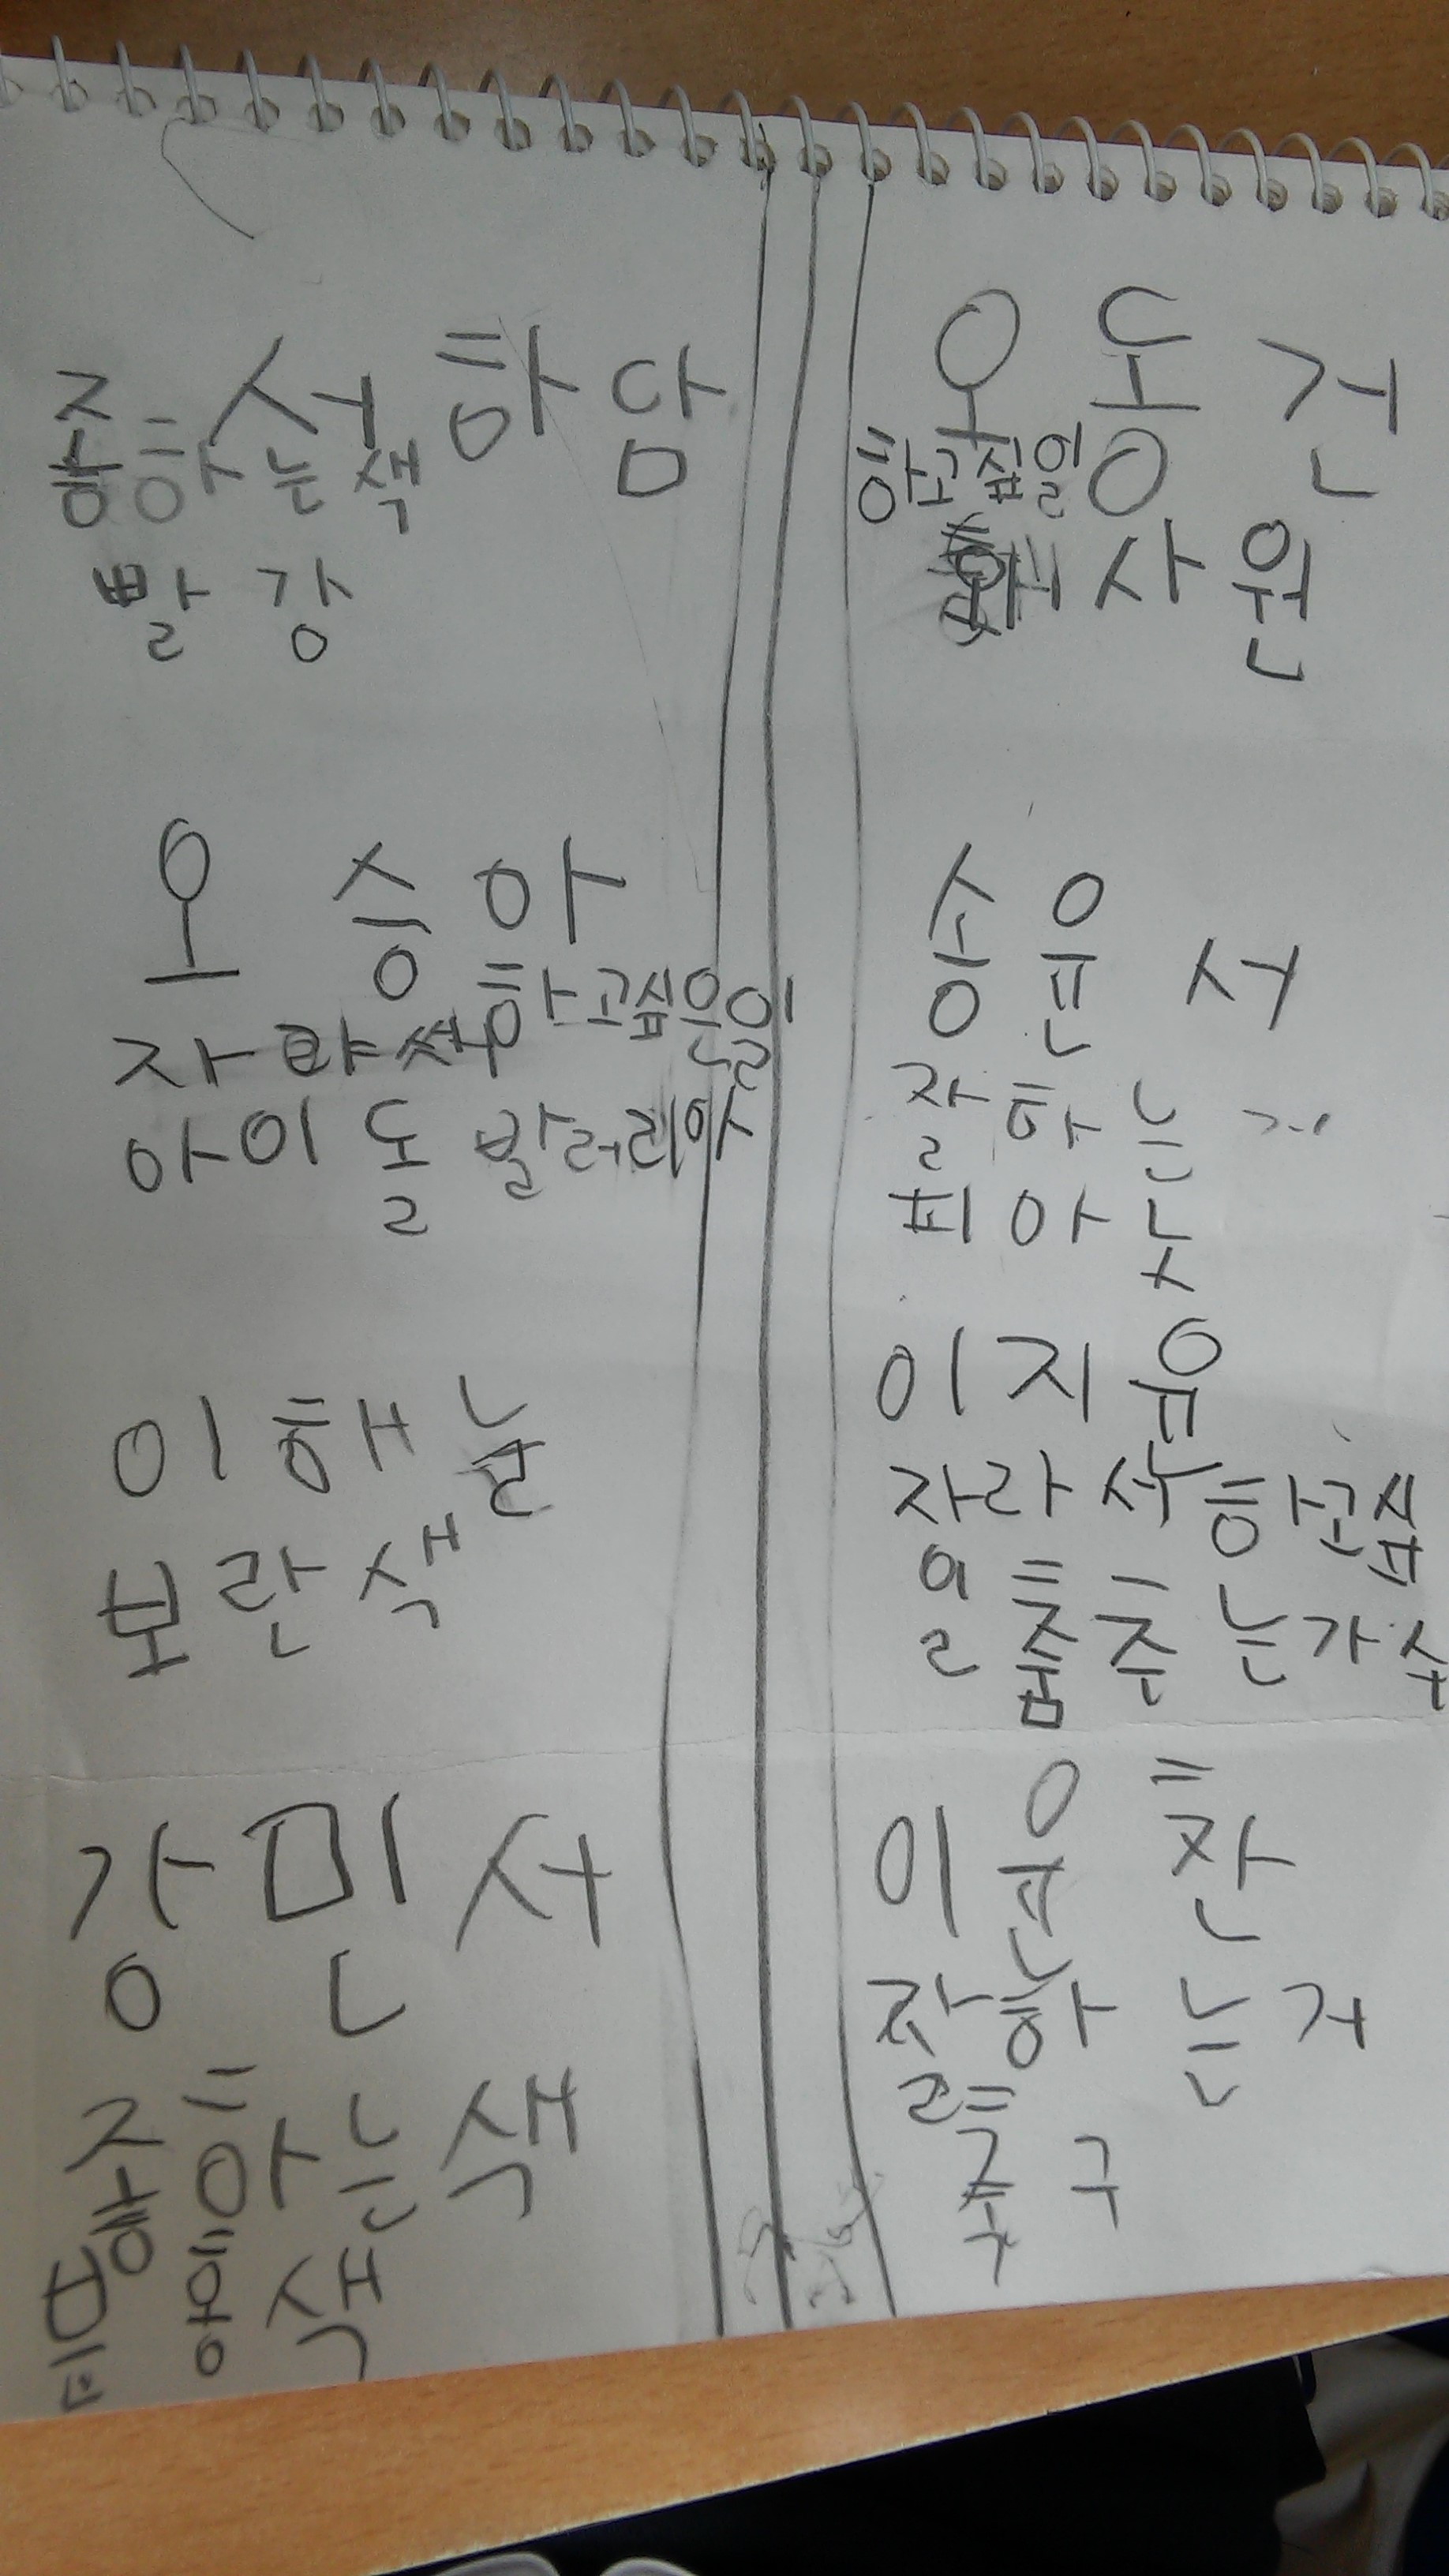 서하담
종하는색
빨강
오승아
자라써하고싶은일
아이돌 발러리아
이해날
보란색
강민서
종하는색
분홍색
오동건
하고싶일
회사원
송윤서
잘하는거
피아노
이지유
자라서하고싶
일춤추는가수
이윤찬
잘하는거
축구